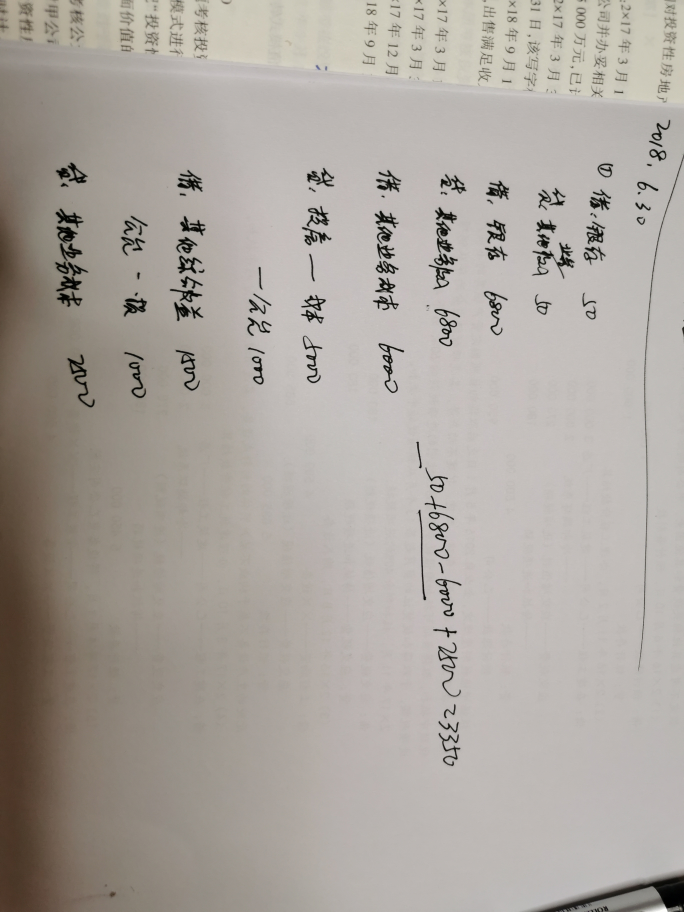 对投资性房地产
:2×17年3月1
公司并办妥相关
5 000万元,已计
2×17年3月3
31日,该写字楼
×18年9月1
,出售满足收
×17年3月1
×17年3月
:17年12月
18年9月
考核投资
模式进行
"投资性
面价值的
考核公
甲公司
资性房
2018.6.30
① 借:银存 50
贷:其他业务收入 50
借:银存 6800
贷:其他业务收入 6800
借:其他业务成本 6000
贷:投房—成本 5000
—公允 1000
借:其他综合收益 1500
公允—损 1000
贷:其他业务成本 2500
50+6800-6000+2500=3350